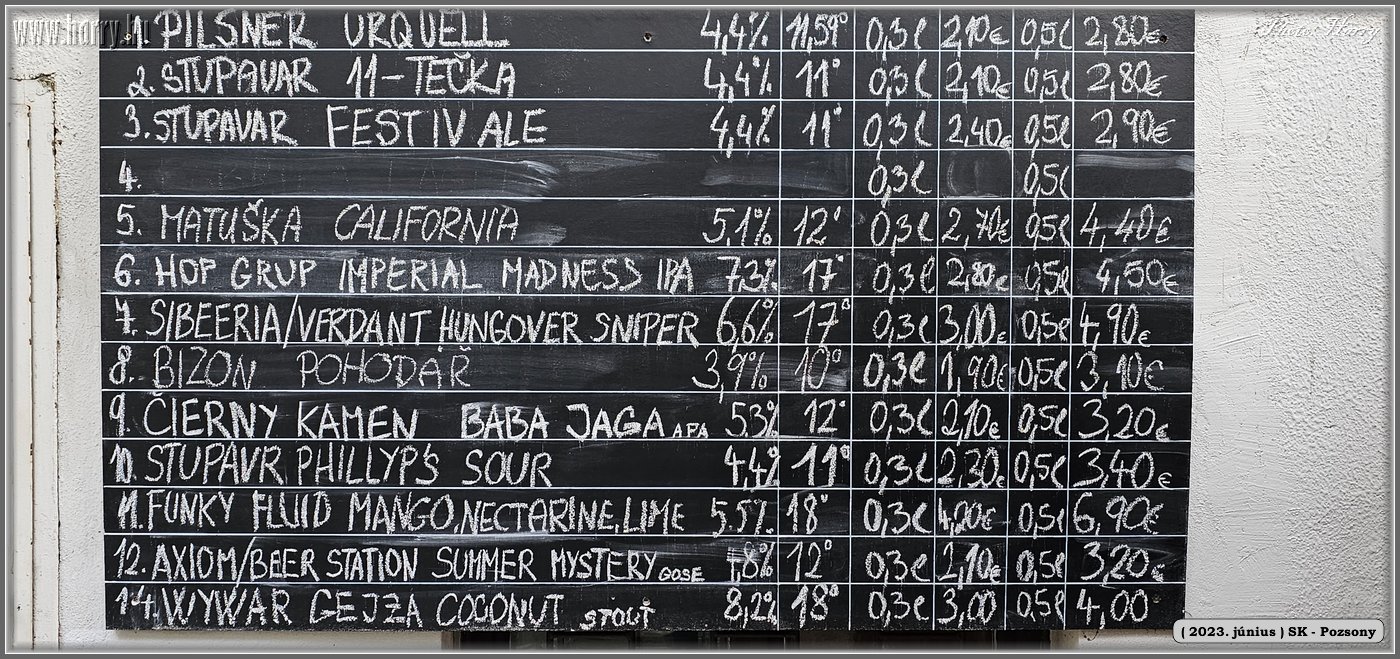 www.harry.hu
Photo: Harry
1. PILSNER URQUELL 4,4% 11,59° 0,3l 2,10€ 0,5l 2,80€
2. STUPAVAR 11-TEČKA 4,4% 11° 0,3l 2,10€ 0,5l 2,80€
3. STUPAVAR FESTIV ALE 4,4% 11° 0,3l 2,40€ 0,5l 2,90€
4. 0,3l 0,5l
5. MATUŠKA CALIFORNIA 5,1% 12° 0,3l 2,70€ 0,5l 4,40€
6. HOP GRUP IMPERIAL MADNESS IPA 7,3% 17° 0,3l 2,80€ 0,5l 4,50€
7. SIBEERIA/VERDANT HUNGOVER SNIPER 6,6% 17° 0,3l 3,00€ 0,5l 4,90€
8. BIZON POHODÁŘ 3,9% 10° 0,3l 1,90€ 0,5l 3,10€
9. ČIERNY KAMEN BABA JAGA APA 5,3% 12° 0,3l 2,10€ 0,5l 3,20€
10. STUPAVR PHILLYP'S SOUR 4,4% 11° 0,3l 2,30€ 0,5l 3,40€
11. FUNKY FLUID MANGO,NECTARINE,LIME 5.5% 18° 0,3l 4,20€ 0,5l 6,90€
12. AXIOM/BEER STATION SUMMER MYSTERY GOSE 12° 0,3l 2,10€ 0,5l 3,20€
14. WYWAR GEJZA COCONUT STOUT 8,2% 18° 0,3l 3,00 0,5l 4,00
( 2023. június ) SK - Pozsony